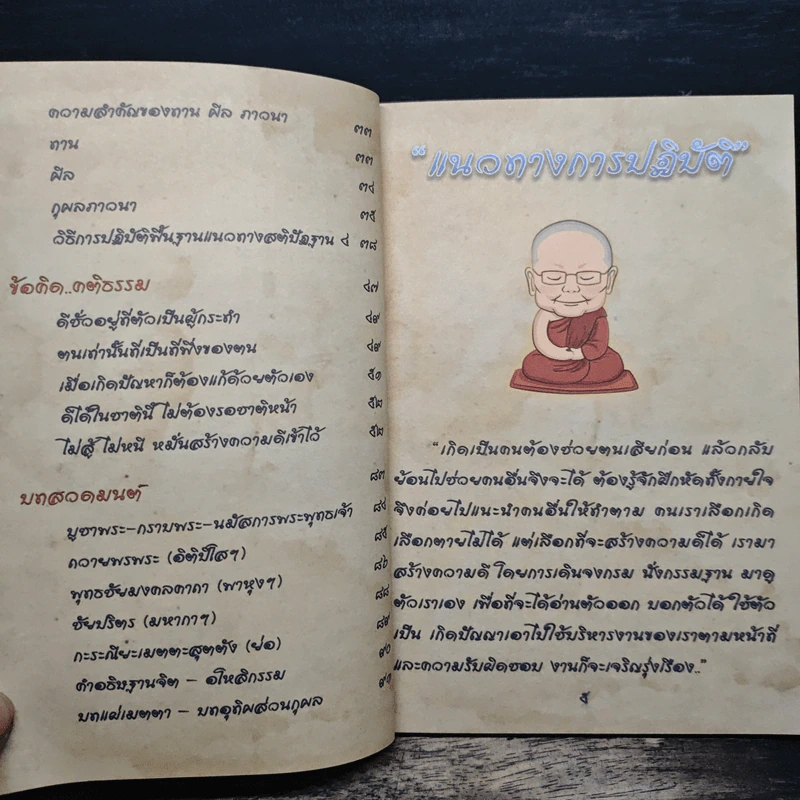 ความสำคัญของทาน ศีล ภาวนา ๓๓
ทาน ๓๓
ศีล ๓๔
กุศลภาวนา ๓๕
วิธีการปฏิบัติพื้นฐานแนวทางสติปัฏฐาน ๔ ๓๘
ข้อคิด..คติธรรม ๔๗
ดีชั่วอยู่ที่ตัวเป็นผู้กระทำ ๔๙
ตนเท่านั้นที่เป็นที่พึ่งของตน ๔๙
เมื่อเกิดปัญหาก็ต้องแก้ด้วยตัวเอง ๕๑
ดีได้ในชาตินี้ ไม่ต้องรอชาติหน้า ๕๒
ไม่สู้ ไม่หนี หมั่นสร้างความดีเข้าไว้ ๕๒
บทสวดมนต์ ๘๓
บูชาพระ-กราบพระ-นมัสการพระพุทธเจ้า ๘๔
ถวายพรพระ (อิติปิโสฯ) ๘๕
พุทธชัยมงคลคาถา (พาหุงฯ) ๘๖
ชัยปริตร (มหากาฯ) ๘๘
กะระณียะเมตตะสุตตัง (ย่อ) ๘๙
คำอธิษฐานจิต – อโหสิกรรม ๙๐
บทแผ่เมตตา – บทอุทิศส่วนกุศล ๙๑
“แนวทางการปฏิบัติ”
“เกิดเป็นคนต้องช่วยตนเสียก่อน แล้วกลับ
ย้อนไปช่วยคนอื่นจึงจะได้ ต้องรู้จักฝึกหัดทั้งกายใจ
จึงค่อยไปแนะนำคนอื่นให้ทำตาม คนเราเลือกเกิด
เลือกตายไม่ได้ แต่เลือกที่จะสร้างความดีได้ เรามา
สร้างความดี โดยการเดินจงกรม นั่งกรรมฐาน มาดู
ตัวเราเอง เพื่อที่จะได้อ่านตัวออก บอกตัวได้ ใช้ตัว
เป็น เกิดปัญญาเอาไปใช้บริหารงานของเราตามหน้าที่
และความรับผิดชอบ งานก็จะเจริญรุ่งเรือง..”
๕